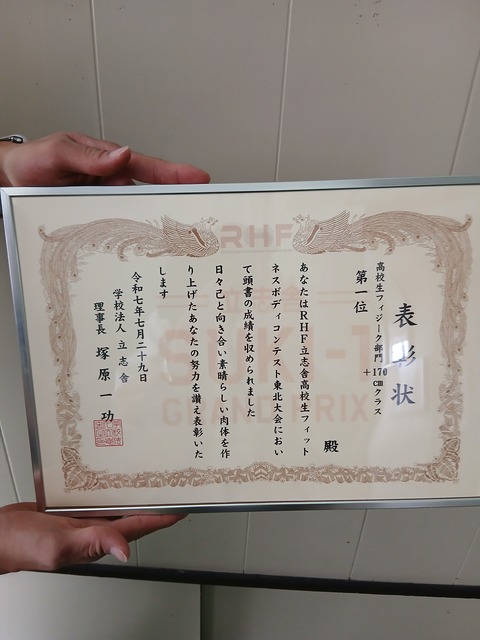 RHF
立志舎
GRAND PRIX
表彰状
高校生フィジーク部門 +170cmクラス
第一位
殿
あなたはRHF立志舎高校生フィット
ネスボディコンテスト東北大会におい
て頭書の成績を収められました
日々己と向き合い素晴らしい肉体を作
り上げたあなたの努力を讃え表彰いた
します
令和七年七月二十九日
学校法人 立志舎
理事長 塚原一功